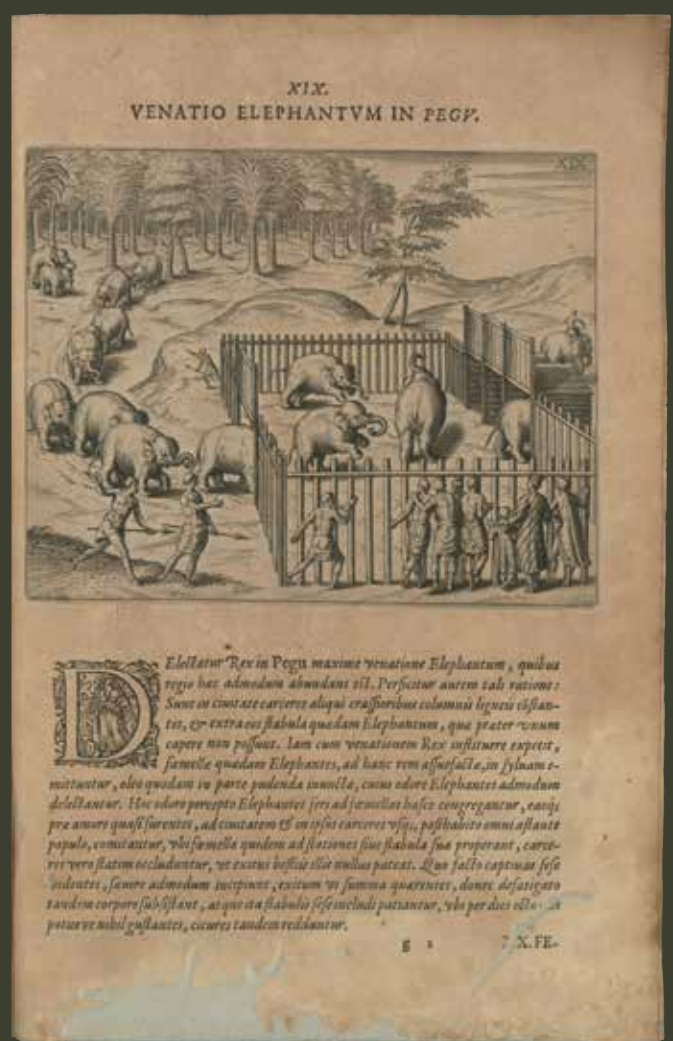 XIX.
VENATIO ELEPHANTVM IN PEGV.
XIX
DElectatur Rex in Pegu maxime venatione Elephantum, quibus
regio hæc admodum abundans est. Perficitur autem tali ratione:
Sunt in ciuitate carceres aliqui crassioribus columnis ligneis cōstan-
tes, & extra eos stabula quædam Elephantum, quæ præter vnum
capere non possunt. Iam cum venationem Rex instituere expetit,
fœmellæ quædam Elephantes, ad hanc rem assuefactæ, in syluam e-
mittuntur, oleo quodam in parte pudenda inunctæ, cuius odore Elephantes admodum
delectantur. Hoc odore percepto Elephantes feri ad fœmellas hasce congregantur, easq;
præ amore quasi furentes, ad ciuitatem & in ipsos carceres vsq;, posthabito omni astante
populo, comitantur, vbi fœmellæ quidem ad stationes siue stabula sua properant, carce-
res vero statim occluduntur, vt exitus bestiis illis nullus pateat. Quo facto captiuas sese
videntes, sæuire admodum incipiunt, exitum vi summa quærentes, donec defatigato
tandem corpore subsistant, atque ita stabulis sese includi patiantur, vbi per dies octo
potus ve nihil gustantes, cicures tandem redduntur.
g 2 X. FE-